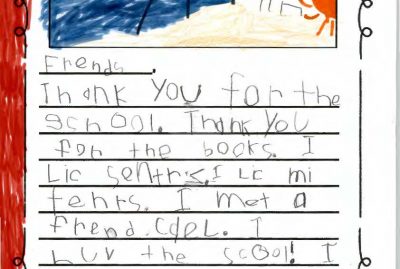 Frends.
Thank you for the
school. Thank you
for the books. I
Lic sentrs. I Lc mi
tehrs. I met a
frend. Cdel. I
Luv the scool! I